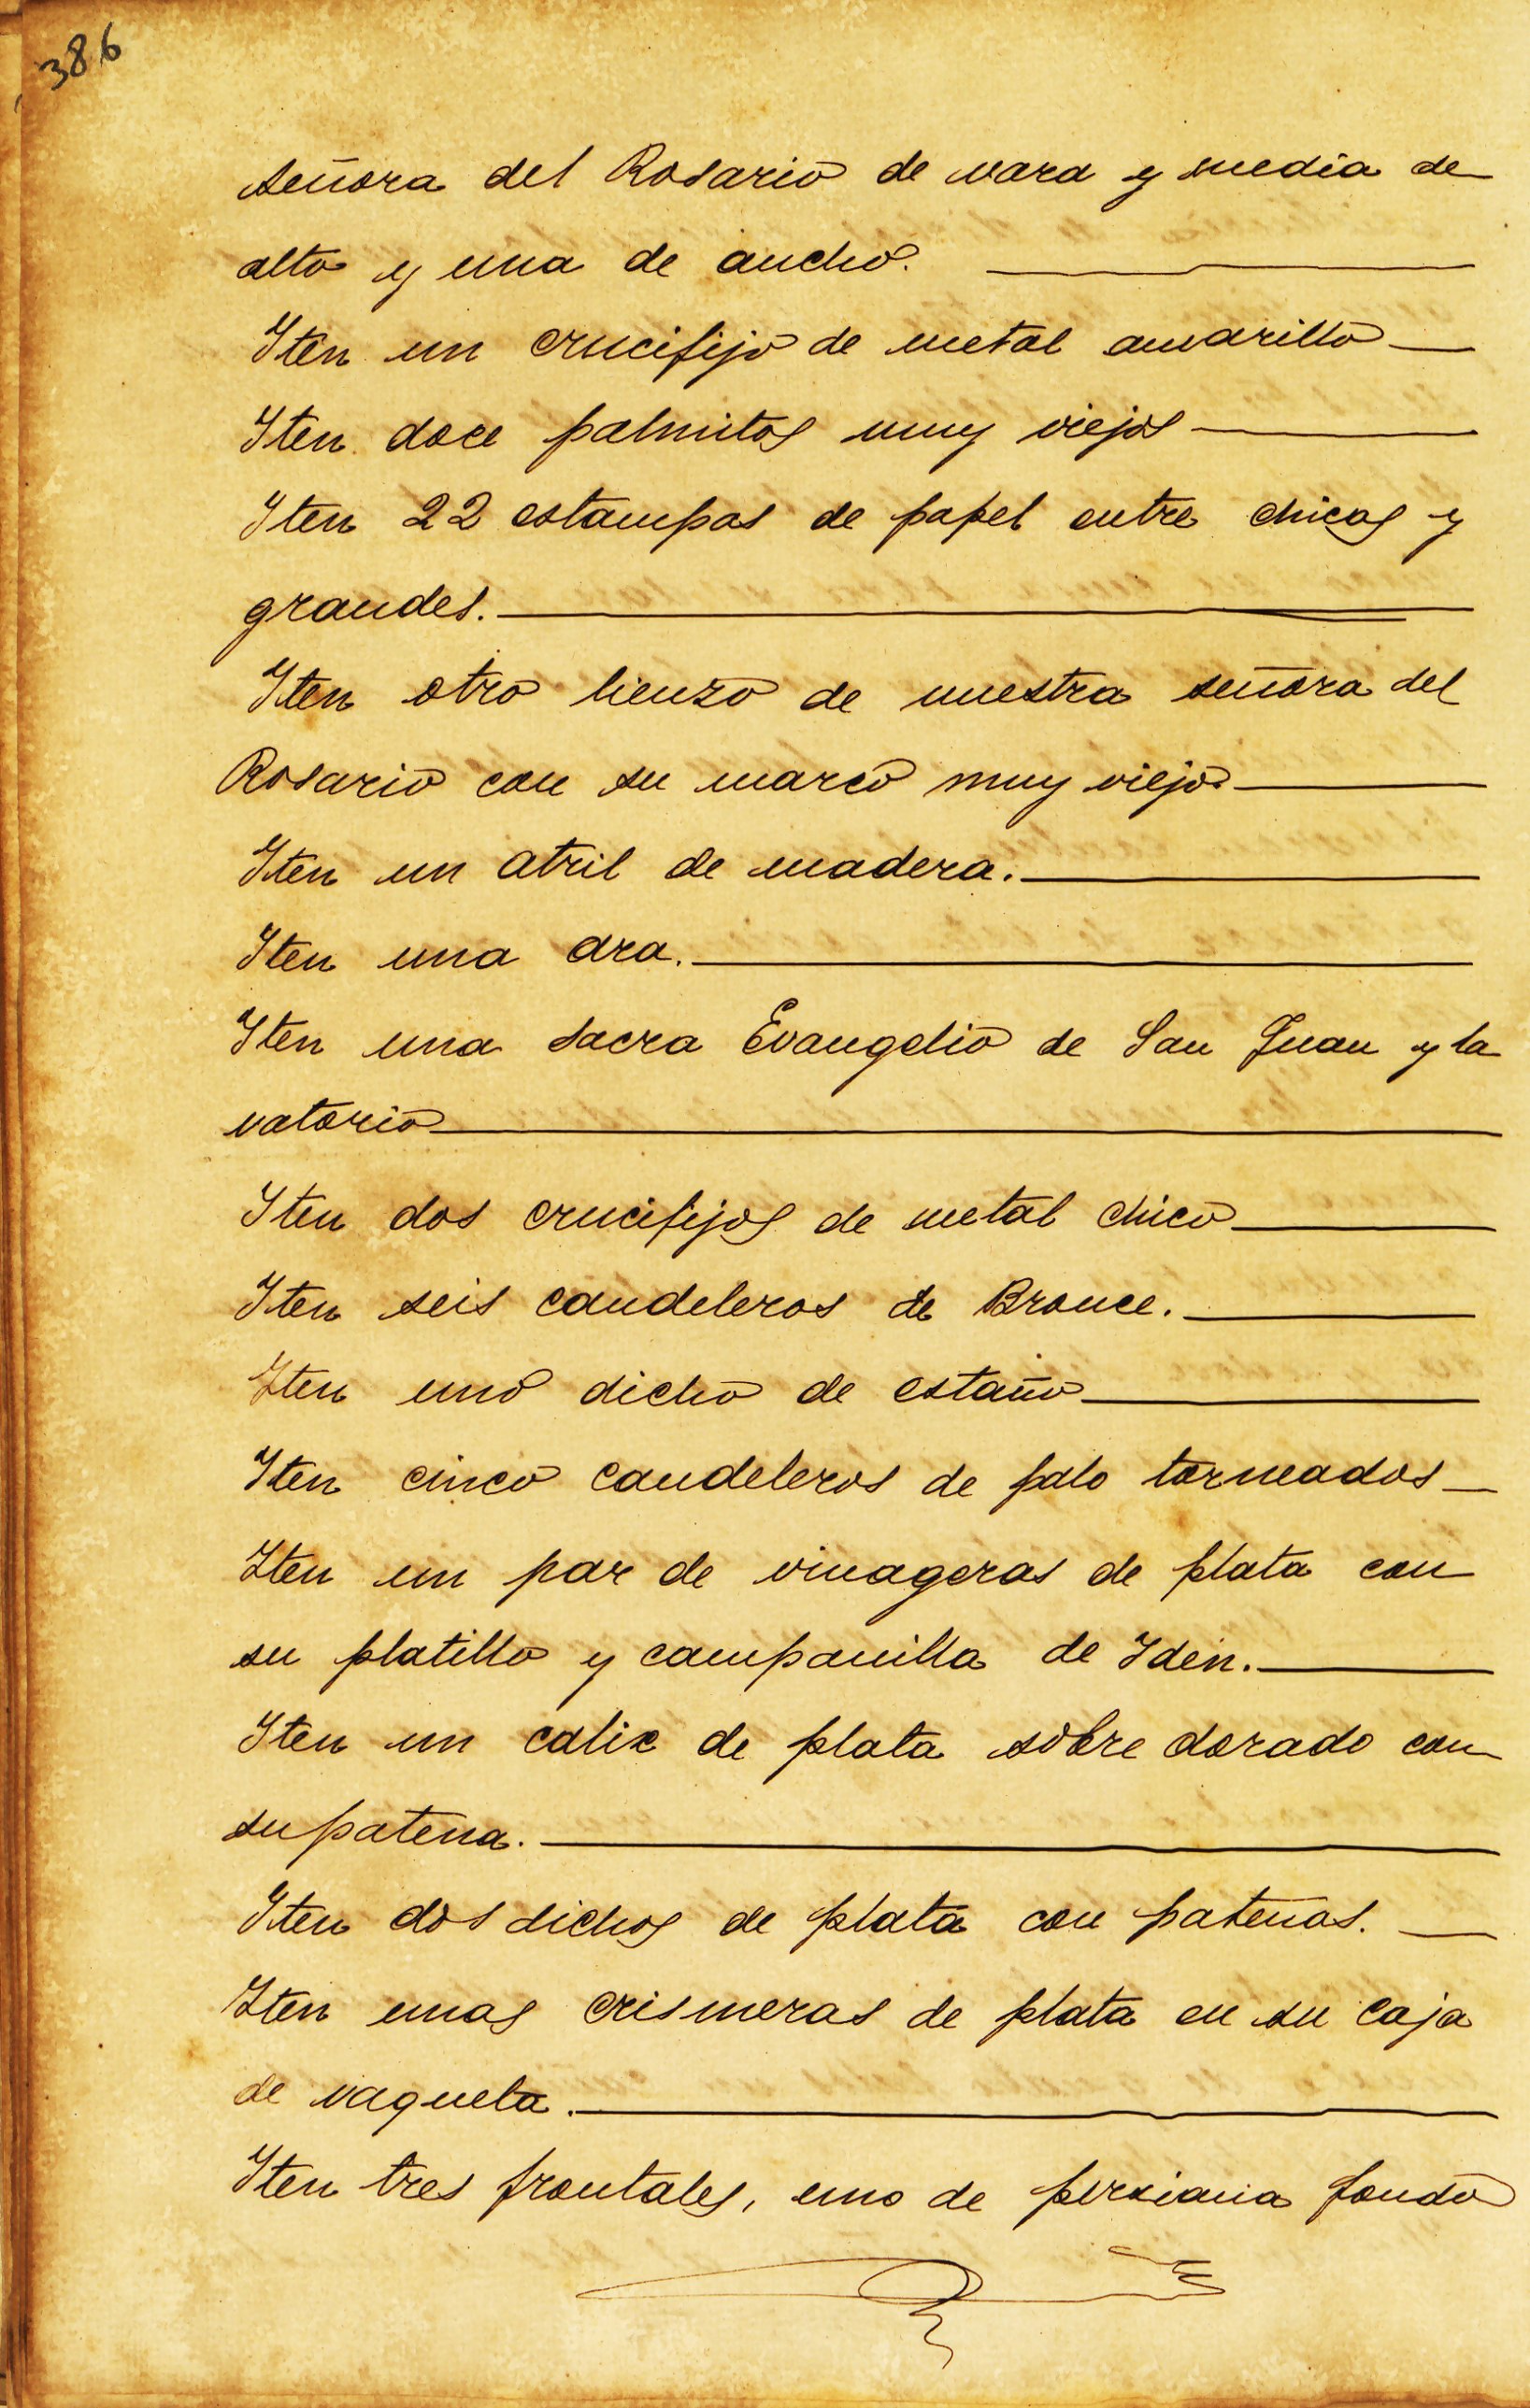 386
señora del Rosario de vara y media de
alto y una de ancho.
Iten un crucifijo de metal amarillo
Iten doce palmitos muy viejos
Iten 22 estampas de papel entre chicas y
grandes.
Iten otro lienzo de nuestra señora del
Rosario con su marco muy viejo
Iten un atril de madera.
Iten una ara.
Iten una sacra Evangelio de San Juan y la
vatorio
Iten dos crucifijos de metal chico
Iten seis candeleros de Bronce.
Iten uno dicho de estaño
Iten cinco candeleros de palo torneados
Iten un par de vinageras de plata con
su platillo y campanilla de Iden.
Iten un calix de plata sobre dorado con
su patena.
Iten dos dichos de plata con patenas.
Iten unas crismeras de plata en su caja
de vaqueta.
Iten tres frontales, uno de persiana fondo